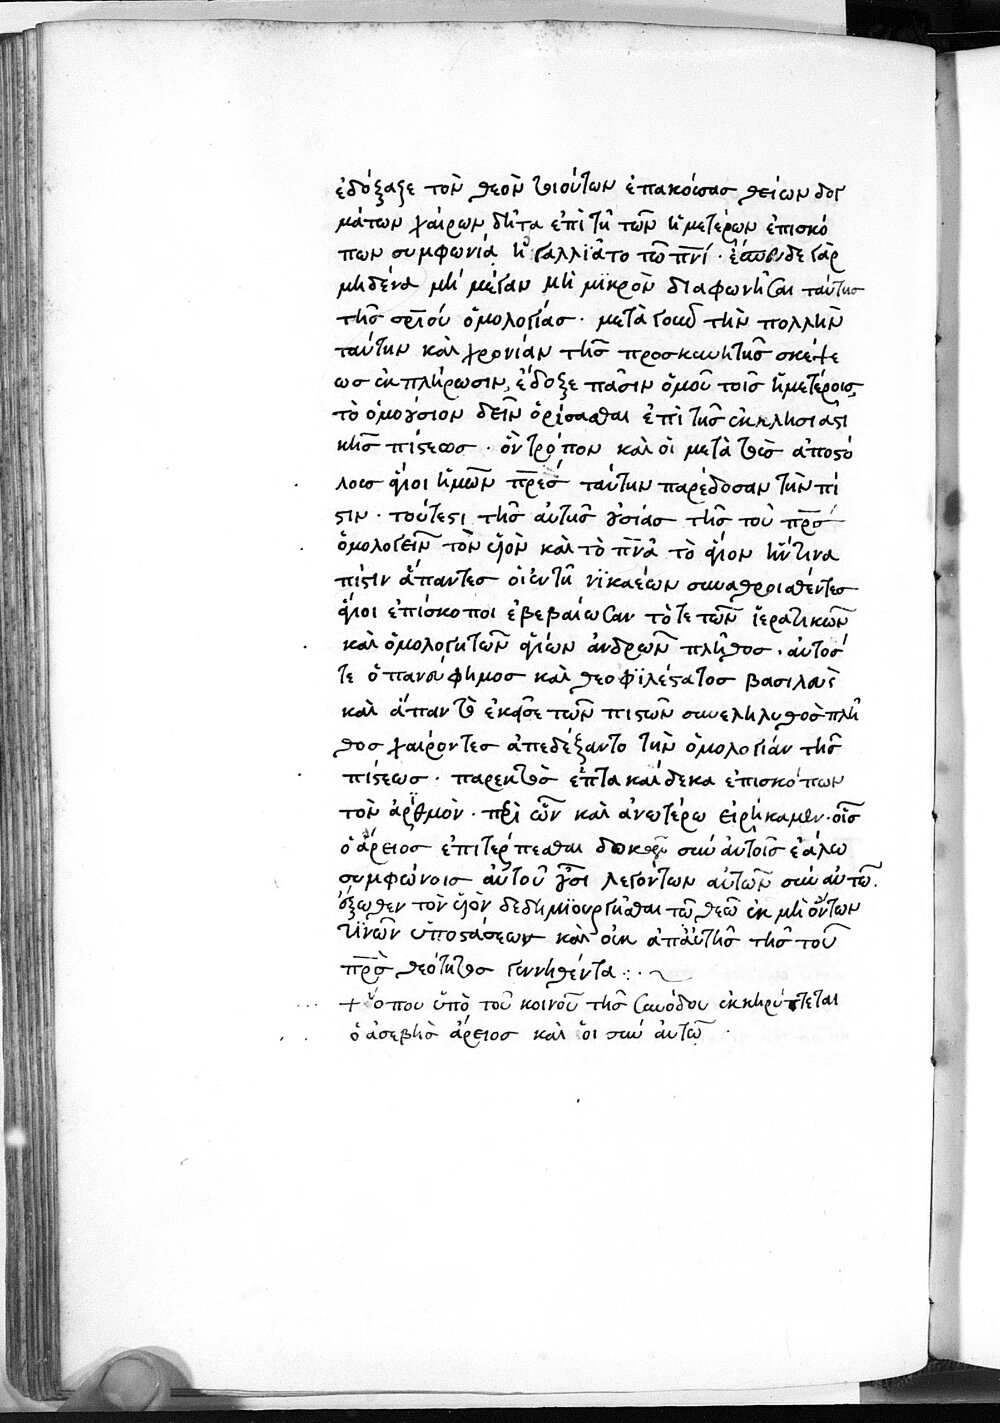 ἐδόξαζε τὸν θεὸν τοιούτων ἐπακούσας θείων δογ
μάτων χαίρων δῆτα ἐπὶ τῇ τῶν ἡμετέρων ἐπισκό
πων συμφωνία ἠγαλλϊᾶτο τῶ πν̅ι · γὰρ
μηδένα μὴ μέγαν μὴ μϊκρὸν διαφωνῆσαι ταύτης
τῆς ὁμολογίας · μετὰ γοῦν τὴν πολλὴν
ταύτην καὶ χρονίαν τῆς προσκυνητῆς σκέψε
ως ἐκπλήρωσιν, ἔδοξε πᾶσιν ὁμοῦ τοῖς ἡμετέροις
τὸ ὁμοούσιον δεῖν ὁρίσασθαι ἐπὶ τῆς ἐκκλησιαστι
κῆς πίστεως · ὃν τρόπον καὶ οἱ μετὰ τοὺς ἀποστό
λους ἅγιοι ἡμῶν πρ̅ες ταύτην παρέδοσαν τὴν πί
στιν · τουτέστι τῆς αὐτῆς οὐσίας τῆς τοῦ πρ̅ς
ὁμολογεῖν τὸν υἱὸν καὶ τὸ πν̅α τὸ ἅγιον ἥντινα
πίστιν ἅπαντες οἱ ἐν τῇ νϊκαέων συναθροισθέντες
ἅγιοι ἐπίσκοποι ἐβεβαίωσαν τότε τῶν ἱερατικῶν
καὶ ὁμολογητῶν ἁγίων ἀνδρῶν πλῆθος · αὐτός
τε ὁ πανεύφημος καὶ θεοφϊλέστατος βασιλεὺς
καὶ ἅπαν τὸ ἐκᾶσε τῶν πιστῶν συνεληλυθὸς πλῆ
θος χαίροντες ἀπεδέξαντο τὴν ὁμολογίαν τῆς
πίστεως · παρεκτὸς ἑπτακαίδεκα ἐπισκόπων
τὸν ἀρϊθμὸν · περὶ ὧν καὶ ἀνωτέρω εἰρήκαμεν · οἷς
ὁ ἄρειος ἐπιτέρπεσθαι δοκῶν σὺν αὐτοῖς ἑάλω
συμφώνοις αὐτοῦ οὖσι λεγόντων αὐτῶν σὺν αὐτῶ.
ἔξωθεν τὸν υἱὸν δεδημϊουργῆσθαι τῶ θεῶ ἐκ μὴ ὄντων
τϊνῶν ὑποστάσεων καὶ οὐκ ἀπ αὐτῆς τῆς τοῦ
πρ̅ς θεότητος γεννηθέντα : · ~
+ ὅπου ὑπὸ τοῦ κοινοῦ τῆς συνόδου ἐκκηρύττεται
ὁ ἀσεβὴς ἄρειος καὶ οἱ σὺν αὐτῶ ·